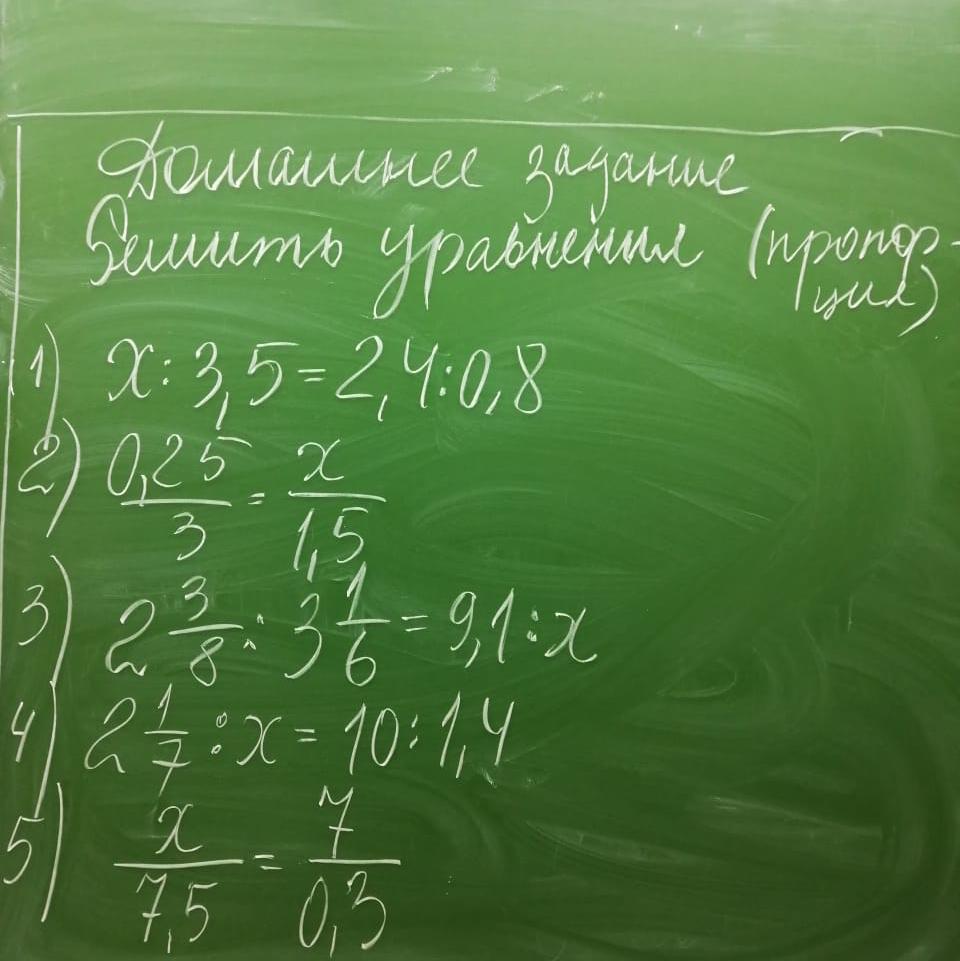 Домашнее задание
Решить уравнения (пропор-
ция)
1) x : 3,5 = 2,4 : 0,8
2) 0,25/3 = x/1,5
3) 2 3/8 : 3 1/6 = 9,1 : x
4) 2 1/7 : x = 10 : 1,4
5) x/7,5 = 7/0,3